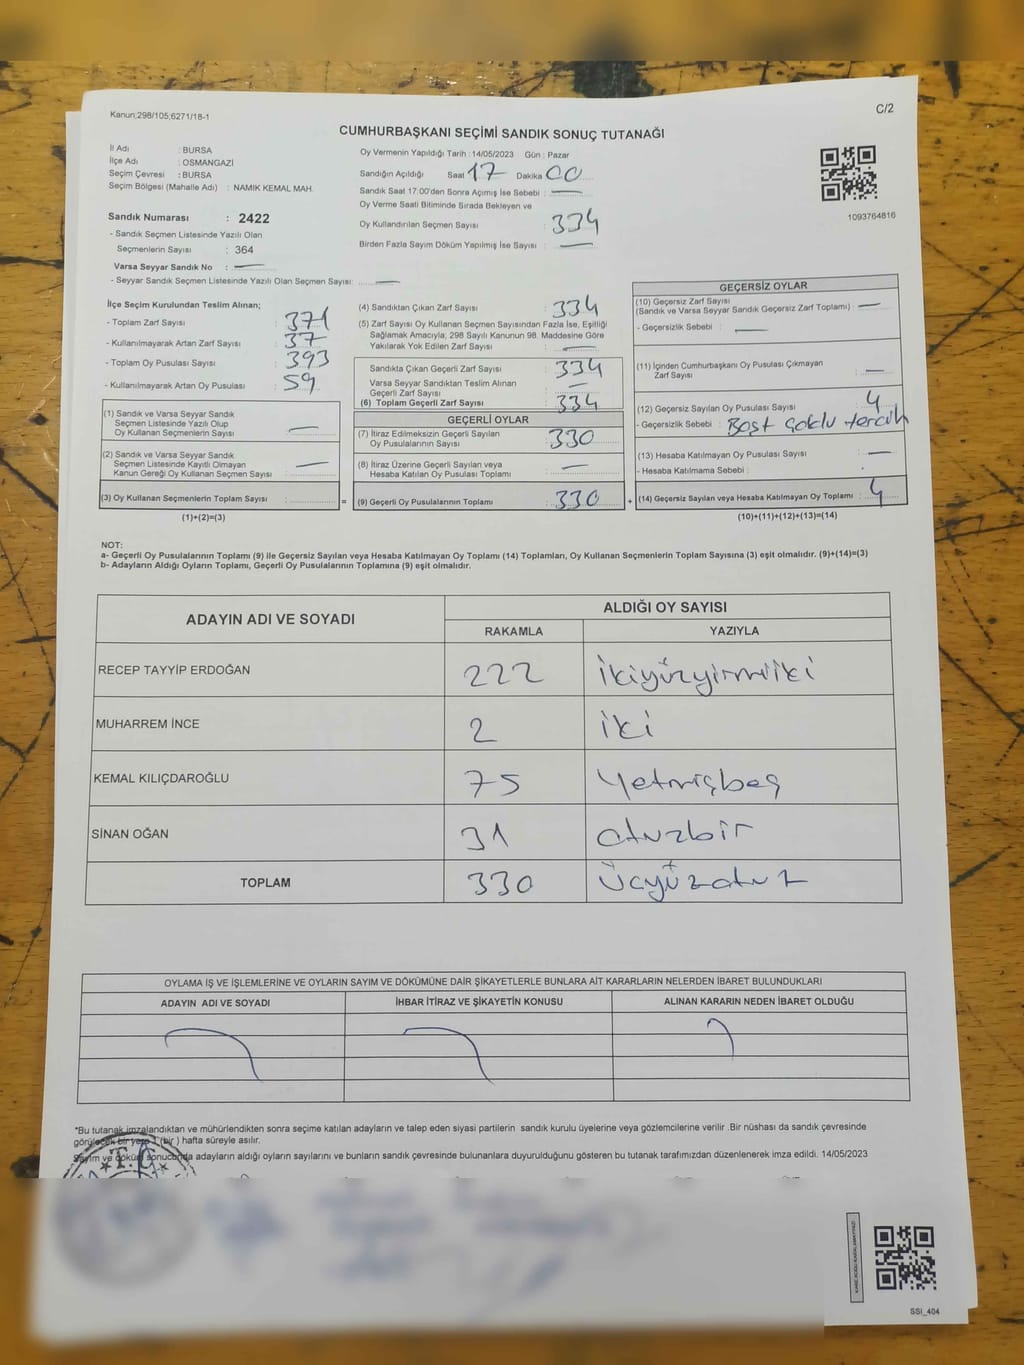 Kanun;298/105;6271/18-1
C/2
CUMHURBAŞKANI SEÇİMİ SANDIK SONUÇ TUTANAĞI
İl Adı : BURSA
İlçe Adı : OSMANGAZİ
Seçim Çevresi : BURSA
Seçim Bölgesi (Mahalle Adı) : NAMIK KEMAL MAH.
Sandık Numarası : 2422
- Sandık Seçmen Listesinde Yazılı Olan
Seçmenlerin Sayısı : 364
Varsa Seyyar Sandık No :
- Seyyar Sandık Seçmen Listesinde Yazılı Olan Seçmen Sayısı:
Oy Vermenin Yapıldığı Tarih : 14/05/2023 Gün : Pazar
Sandığın Açıldığı Saat 17 Dakika 00
Sandık Saat 17:00'den Sonra Açımış İse Sebebi :
Oy Verme Saati Bitiminde Sırada Bekleyen ve
Oy Kullandırılan Seçmen Sayısı : 334
Birden Fazla Sayım Döküm Yapılmış İse Sayısı :
1093764816
İlçe Seçim Kurulundan Teslim Alınan;
- Toplam Zarf Sayısı : 371
- Kullanılmayarak Artan Zarf Sayısı : 37
- Toplam Oy Pusulası Sayısı : 393
- Kullanılmayarak Artan Oy Pusulası : 59
(1) Sandık ve Varsa Seyyar Sandık
Seçmen Listesinde Yazılı Olup
Oy Kullanan Seçmenlerin Sayısı :
(2) Sandık ve Varsa Seyyar Sandık
Seçmen Listesinde Kayıtlı Olmayan
Kanun Gereği Oy Kullanan Seçmen Sayısı :
(3) Oy Kullanan Seçmenlerin Toplam Sayısı :
(1)+(2)=(3)
(4) Sandıktan Çıkan Zarf Sayısı : 334
(5) Zarf Sayısı Oy Kullanan Seçmen Sayısından Fazla İse, Eşitliği
Sağlamak Amacıyla; 298 Sayılı Kanunun 98. Maddesine Göre
Yakılarak Yok Edilen Zarf Sayısı :
Sandıkta Çıkan Geçerli Zarf Sayısı : 334
Varsa Seyyar Sandıktan Teslim Alınan
Geçerli Zarf Sayısı :
(6) Toplam Geçerli Zarf Sayısı : 334
GEÇERLİ OYLAR
(7) İtiraz Edilmeksizin Geçerli Sayılan
Oy Pusulalarının Sayısı : 330
(8) İtiraz Üzerine Geçerli Sayılan veya
Hesaba Katılan Oy Pusulası Toplamı :
= (9) Geçerli Oy Pusulalarının Toplamı : 330 +
GEÇERSİZ OYLAR
(10) Geçersiz Zarf Sayısı
(Sandık ve Varsa Seyyar Sandık Geçersiz Zarf Toplamı) :
- Geçersizlik Sebebi :
(11) İçinden Cumhurbaşkanı Oy Pusulası Çıkmayan
Zarf Sayısı :
(12) Geçersiz Sayılan Oy Pusulası Sayısı : 4
- Geçersizlik Sebebi : tercih
(13) Hesaba Katılmayan Oy Pusulası Sayısı :
- Hesaba Katılmama Sebebi :
(14) Geçersiz Sayılan veya Hesaba Katılmayan Oy Toplamı : 4
(10)+(11)+(12)+(13)=(14)
NOT:
a- Geçerli Oy Pusulalarının Toplamı (9) ile Geçersiz Sayılan veya Hesaba Katılmayan Oy Toplamı (14) Toplamları, Oy Kullanan Seçmenlerin Toplam Sayısına (3) eşit olmalıdır. (9)+(14)=(3)
b- Adayların Aldığı Oyların Toplamı, Geçerli Oy Pusulalarının Toplamına (9) eşit olmalıdır.
ADAYIN ADI VE SOYADI
ALDIĞI OY SAYISI
RAKAMLA YAZIYLA
RECEP TAYYİP ERDOĞAN 222 ikiyüzyirmiiki
MUHARREM İNCE 2 iki
KEMAL KILIÇDAROĞLU 75 Yetmişbeş
SİNAN OĞAN 31 otuzbir
TOPLAM 330 Üçyüzotuz
OYLAMA İŞ VE İŞLEMLERİNE VE OYLARIN SAYIM VE DÖKÜMÜNE DAİR ŞİKAYETLERLE BUNLARA AİT KARARLARIN NELERDEN İBARET BULUNDUKLARI
ADAYIN ADI VE SOYADI İHBAR İTİRAZ VE ŞİKAYETİN KONUSU ALINAN KARARIN NEDEN İBARET OLDUĞU
*Bu tutanak imzalandıktan ve mühürlendikten sonra seçime katılan adayların ve talep eden siyasi partilerin sandık kurulu üyelerine veya gözlemcilerine verilir .Bir nüshası da sandık çevresinde
görülecek bir yere 1 (bir ) hafta süreyle asılır.
Sayım ve döküm sonucunda adayların aldığı oyların sayılarını ve bunların sandık çevresinde bulunanlara duyurulduğunu gösteren bu tutanak tarafımızdan düzenlenerek imza edildi. 14/05/2023
T.C.
SSİ_404